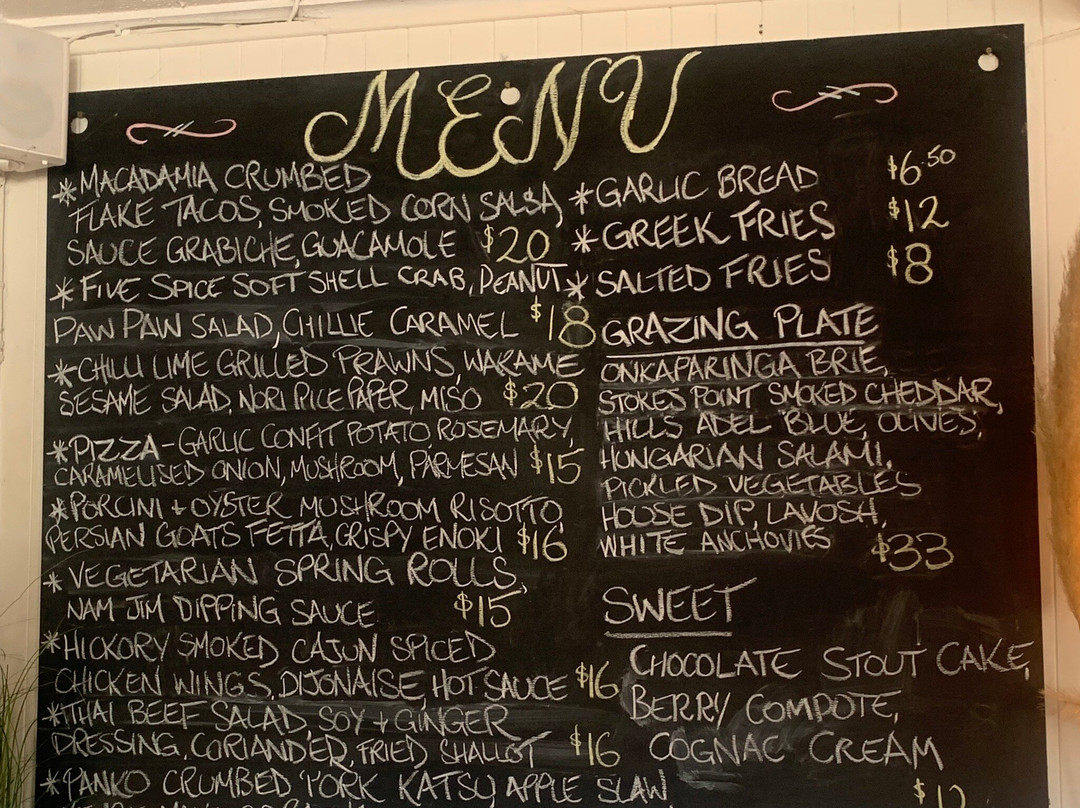 MENU
*MACADAMIA CRUMBED
FLAKE TACOS, SMOKED CORN SALSA,
SAUCE GRABICHE, GUACAMOLE $20
*FIVE SPICE SOFT SHELL CRAB, PEANUT
PAW PAW SALAD, CHILLIE CARAMEL $18
*CHILLI LIME GRILLED PRAWNS, WAKAME
SESAME SALAD, NORI RICE PAPER, MISO $20
*PIZZA - GARLIC CONFIT POTATO ROSEMARY,
CARAMELISED ONION, MUSHROOM, PARMESAN $15
*PORCINI + OYSTER MUSHROOM RISOTTO,
PERSIAN GOATS FETTA, CRISPY ENOKI $16
*VEGETARIAN SPRING ROLLS,
NAM JIM DIPPING SAUCE $15
*HICKORY SMOKED CAJUN SPICED
CHICKEN WINGS, DIJONAISE, HOT SAUCE $16
*THAI BEEF SALAD, SOY + GINGER
DRESSING, CORIANDER, FRIED SHALLOT $16
*PANKO CRUMBED PORK KATSU, APPLE SLAW
*GARLIC BREAD $6.50
*GREEK FRIES $12
*SALTED FRIES $8
GRAZING PLATE
ONKAPARINGA BRIE,
STOKES POINT SMOKED CHEDDAR,
HILLS ADEL BLUE, OLIVES,
HUNGARIAN SALAMI,
PICKLED VEGETABLES
HOUSE DIP, LAVOSH,
WHITE ANCHOVIES $33
SWEET
CHOCOLATE STOUT CAKE,
BERRY COMPOTE,
COGNAC CREAM